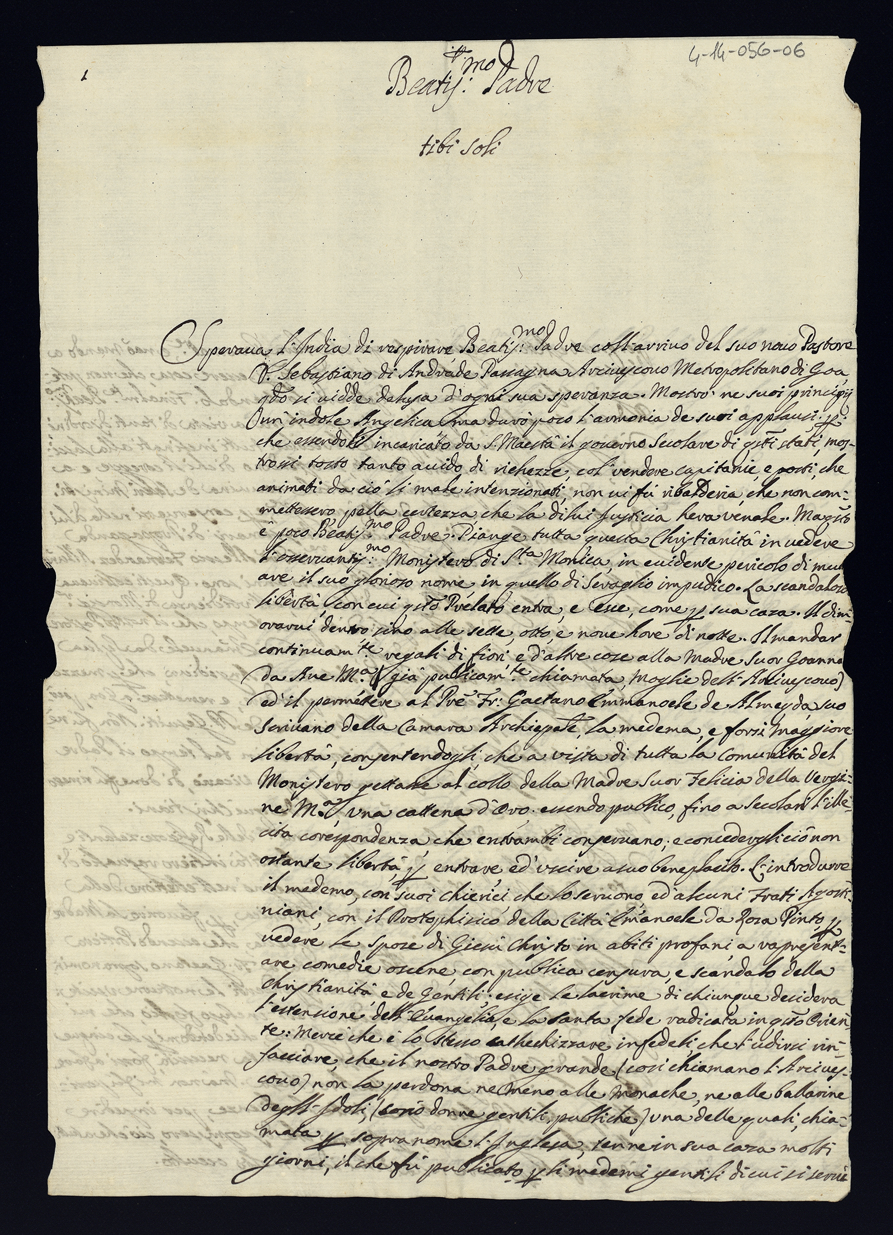 4-14-056-06
1
Beatiss.mo Padre
tibi soli
Sperava l'India di respirare Beatiss.mo Padre coll'arrivo del suo novo Pastore
D. Sebastiano di Andrade Arcivescovo Metropolitano di Goa
si vidde delusa d'ogni sua speranza. Mostrò ne suoi principij
un'indole Angelica, ma durò poco l'armonia de suoi applausi
che essendoli incaricato da S. Maestà il governo Secolare di q.sti stati, mos-
trossi tosto tanto avido di richezze, col vendere capitanie, e posti, che
animati da ciò li male intenzionati, non vi fù ribalderia, che non com-
mettessero pella certezza che la di lui justicia hera venale. Ma q.sto
è poco Beatiss.mo Padre. Piange tutta questa Christianità in vedere
l'osservantiss.mo Monistero di S.ta Monica, in evidense pericolo di mut
are il suo glorioso nome in quello di Seraglio impudico. La scandalosa
libertà con cui q.sto Prelato entra, e esce, come p sua caza. Il dim-
orarvi dentro sino alle sette, otto, e nove hore di notte. Il mandar
continuam.te regali di fiori, e d'altre coze alla Madre Suor Goanna
da Ave M.a (già publicam.te chiamata, Moglie dell'Arcivescovo)
ed'il permettere al Pre Fr: Gaetano Emmanoele de Almeyda suo
scrivano della Camara Archiepale, la medema, e forsi maggiore
libertà, consentendogli, che a vista di tutta la comunità del
Monistero gettasse al collo della Madre Suor Felicia della Vergi-
ne M.a, una cattena d'oro. essendo publico, fino a Secolari l'ille-
cita corespondenza che entrambi conservano; e concedergli ciò non
ostante libertà p entrare ed'uscire a suo beneplacito. L'introdurre
il medemo, con suoi chierici che lo servono, ed'alcuni Frati Agosti-
niani, con il Protophisico della Città Emanoele da Roza Pinto, p
vedere le spose di Giesù Christo in abiti profani a rapresent-
are comedie oscene con publica censura, e scandalo della
Christianità, e de Gentili; esige le lacrime di chiunque desidera
l'estensione dell'Evangelio, e la santa fede radicata in q.sto Orien
te: Mercè che è lo stesso cathechizzare infedeli che l'udirsi rin-
facciare, che il nostro Padre grande (così chiamano l'Arcives-
covo) non la perdona ne meno alle Monache, ne alle ballarine
degl'Idoli, (sono donne gentili, publiche) una delle quali, chia-
mata p sopranome l'Inglesa, tenne in sua caza molti
giorni, il che fù publicato p li medemi gentili di cui si servì